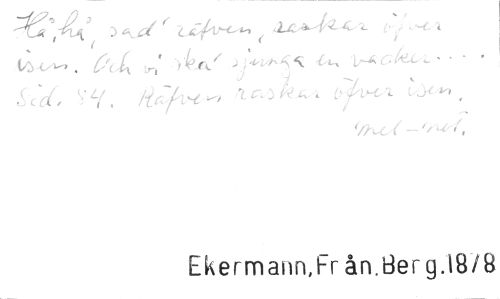 Hå, hå, sad' räfven, raskar öfver
isen. Och vi ska' sjunga en vacker....
Sid. 84. Räfven raskar öfver isen.
mel-not.
Ekermann,Från.Berg.1878